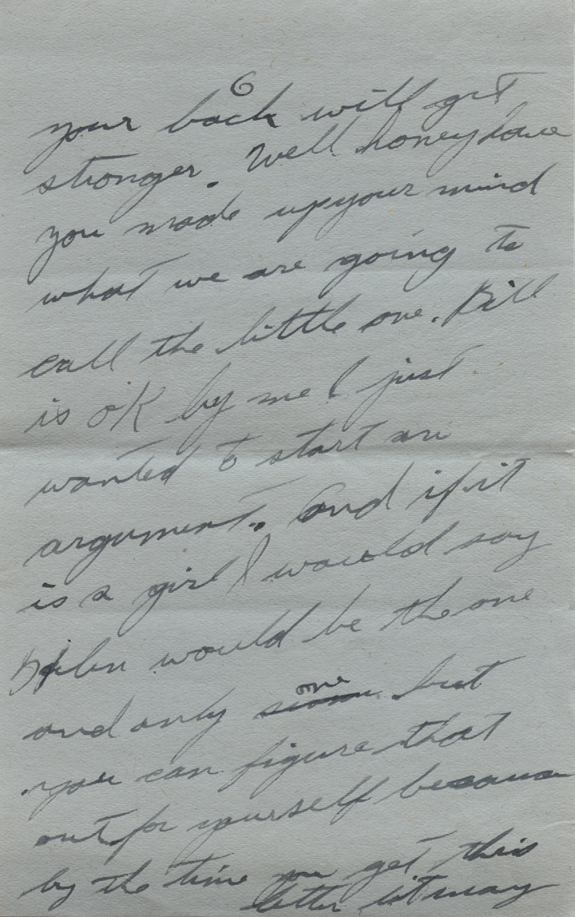 6
your back will get
stronger. Well honey have
you made up your mind
what we are going to
call the little one. Bill
is OK by me I just
wanted to start an
argument. And if it
is a girl I would say
would be the one
and only one but
you can figure that
out for yourself because
by the time you get this
letter it may